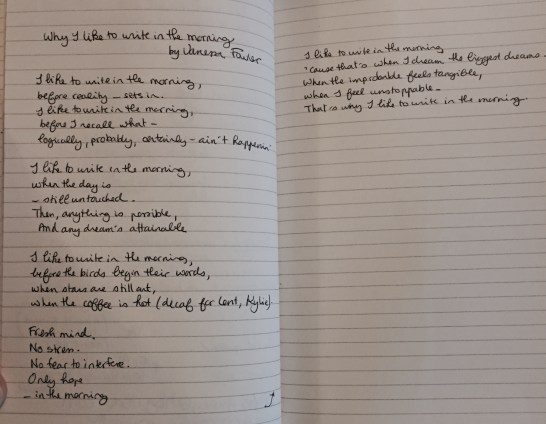 Why I like to write in the morning
by Vanessa Fowler
I like to write in the morning,
before reality – sets in.
I like to write in the morning,
before I recall what –
logically, probably, certainly – ain't happenin'
I like to write in the morning,
when the day is
– still untouched.
Then, anything is possible,
And any dream's attainable
I like to write in the morning,
before the birds begin their words,
when stars are still out,
when the coffee is hot (decaf for Lent, Kylie)
Fresh mind.
No stress.
No fear to interfere.
Only hope
– in the morning
I like to write in the morning
'cause that's when I dream the biggest dreams.
When the improbable feels tangible,
when I feel unstoppable –
That's why I like to write in the morning